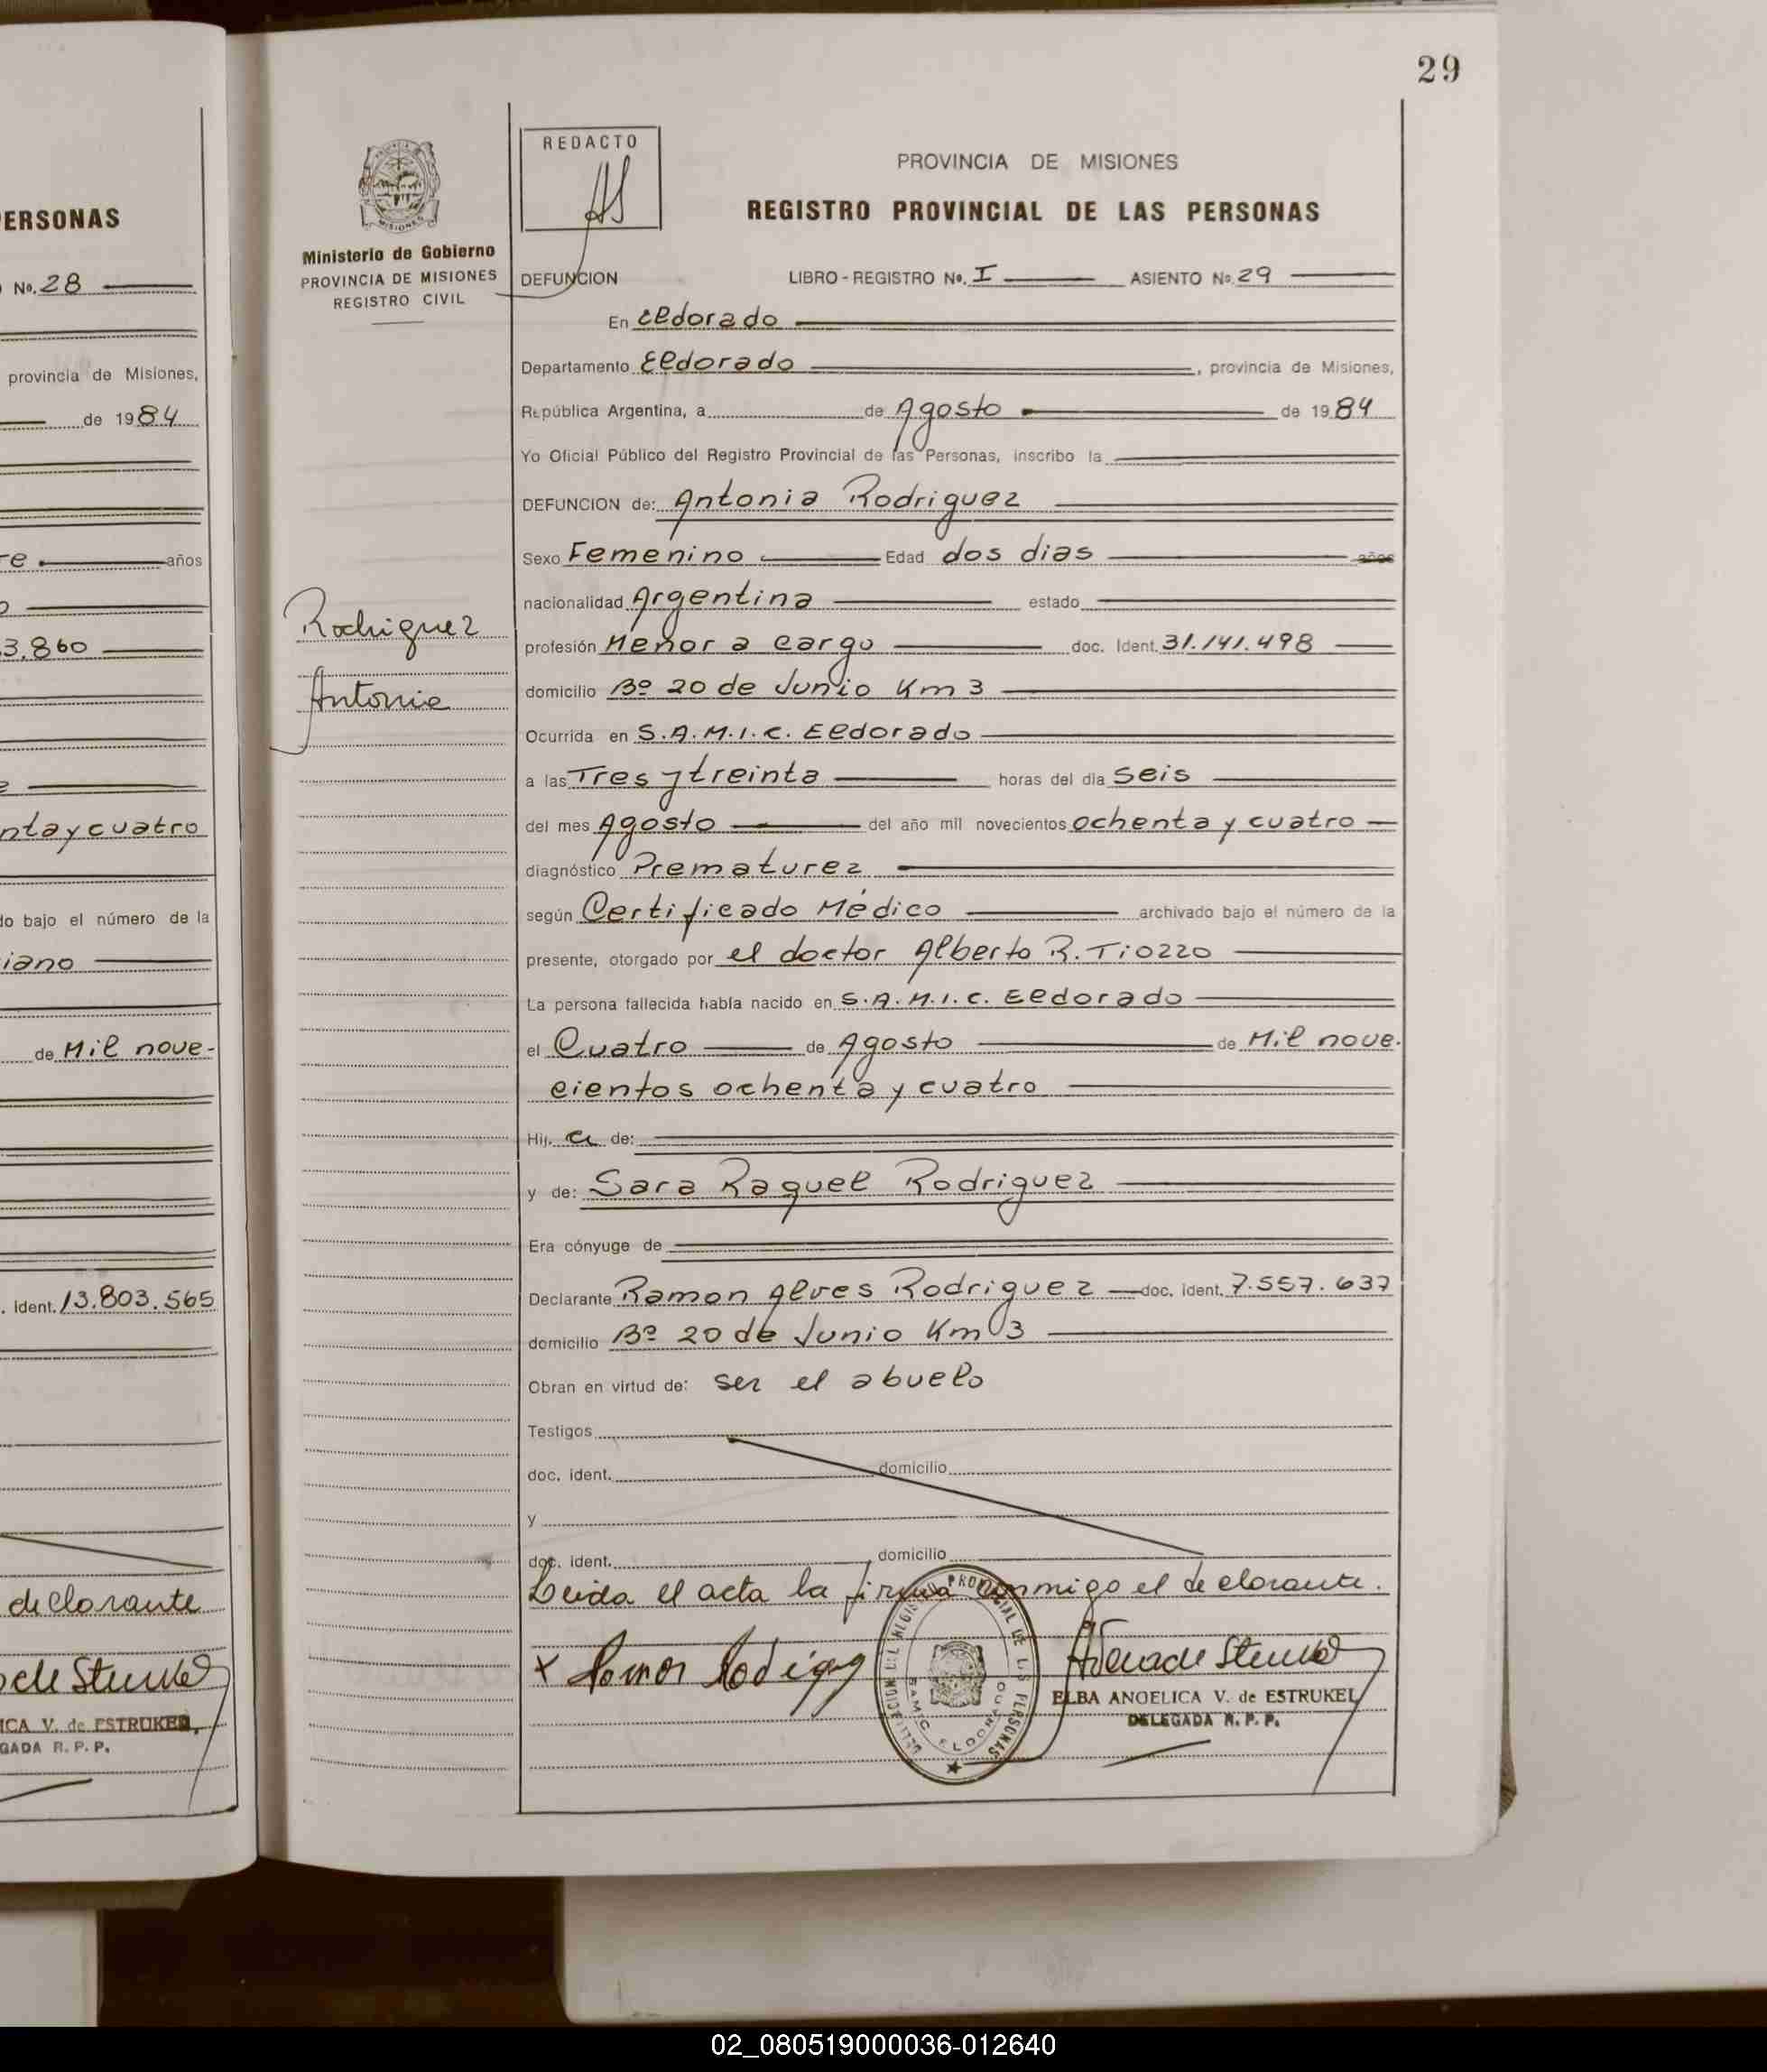 29
ERSONAS
No. 28
provincia de Misiones,
de 1984
re años
3.860
ntay cuatro
do bajo el número de la
iano
de Mil nove-
. ident. 13.803.565
declarante
ICA V. de ESTRUKEL
GADA R. P. P.
Ministerio de Gobierno
PROVINCIA DE MISIONES
REGISTRO CIVIL
Rodriguez
Antonia
REDACTO
PROVINCIA DE MISIONES
REGISTRO PROVINCIAL DE LAS PERSONAS
DEFUNCION LIBRO-REGISTRO No. I ASIENTO No. 29
En Eldorado
Departamento Eldorado , provincia de Misiones,
República Argentina, a de Agosto de 1984
Yo Oficial Público del Registro Provincial de las Personas, inscribo la
DEFUNCION de: Antonia Rodriguez
Sexo Femenino Edad dos dias años
nacionalidad Argentina estado
profesión Menor a cargo doc. Ident. 31.141.498
domicilio Bº 20 de Junio Km 3
Ocurrida en S.A.M.I.C. Eldorado
a las Tres y treinta horas del día seis
del mes Agosto del año mil novecientos ochenta y cuatro
diagnóstico Prematurez
según Certificado Médico archivado bajo el número de la
presente, otorgado por el doctor Alberto R. Tiozzo
La persona fallecida había nacido en S.A.M.I.C. Eldorado
el Cuatro de Agosto de Mil nove-
cientos ochenta y cuatro
Hij. a de:
y de: Sara Raquel Rodriguez
Era cónyuge de
Declarante Ramon Alves Rodriguez doc. ident. 7.557.637
domicilio Bº 20 de Junio Km 3
Obran en virtud de: ser el abuelo
Testigos
doc. ident. domicilio
y
doc. ident. domicilio
Leida el acta la firma conmigo el declarante.
x Ramon Rodriguez
ELBA ANGELICA V. de ESTRUKEL
DELEGADA R. P. P.
02_080519000036-012640